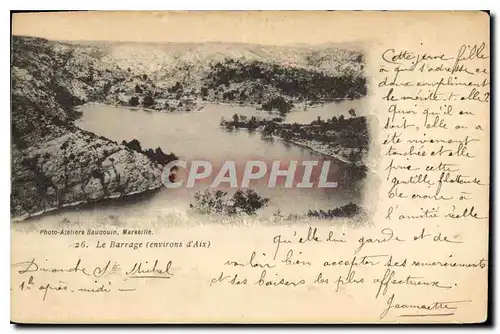 Cette jeune fille
à qui s'adresse ce
doux compliment
le mérite-t-elle?
Quoi qu'il en
soit, elle en a
été vivement
touchée et elle
prie cette
gentille flatteuse
de croire à
l'amitié réelle
CPARHAMA
Photo-Ateliers BAUDOUIN, Marseille.
26. Le Barrage (environs d'Aix)
qu'elle lui garde et de
Dimanche Ste Michel
vouloir bien accepter ses remerciements
1h après-midi
et ses baisers les plus affectueux.
Jeannette